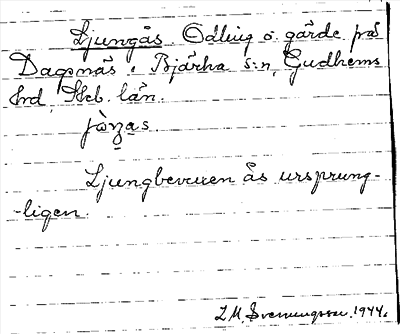 Ljungås. Odling o. gärde på
Dagsnäs i Bjärka s:n, Gudhems
hrd, Skb. län.
jòŋas.
Ljungbevuxen ås ursprung-
-ligen.
L.M. Svenungsson. 1944.